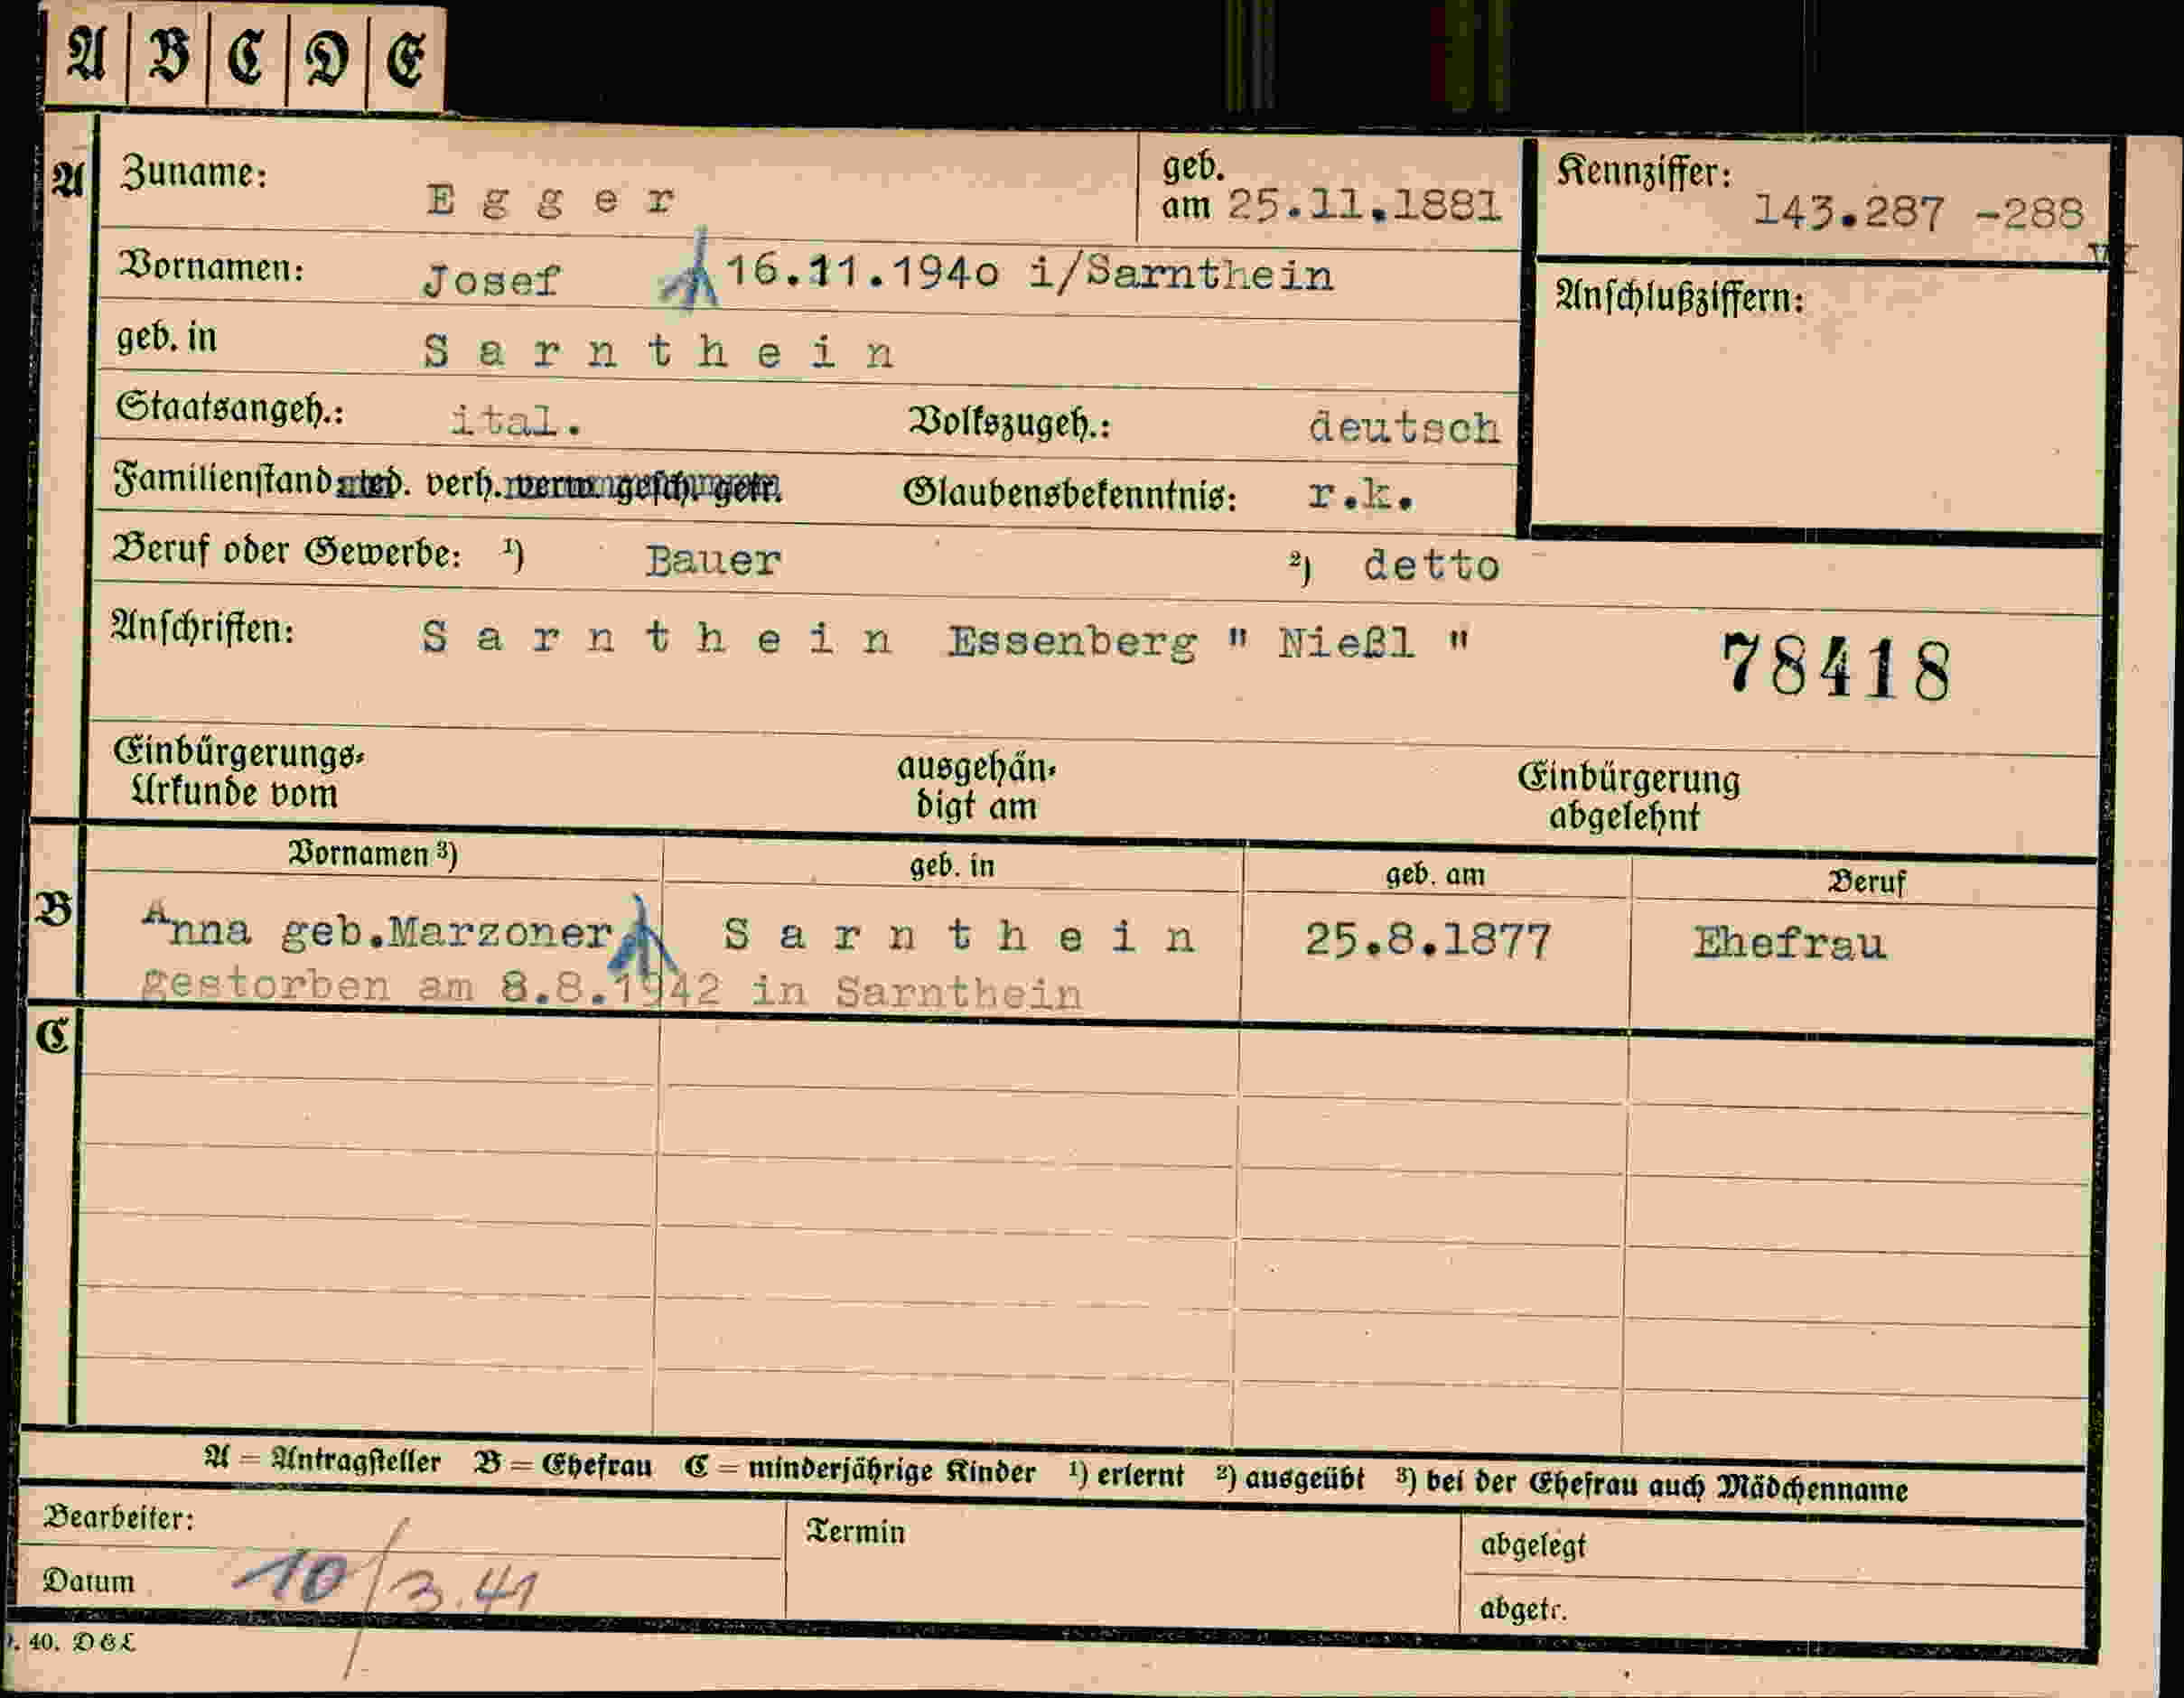 A B C D E
A Zuname: Egger geb. am 25.11.1881 Kennziffer: 143.287 -288
Vornamen: Josef 16.11.194o i/Sarnthein Anschlußziffern:
geb. in Sarnthein
Staatsangeh.: ital. Volkszugeh.: deutsch
Familienstand led. verh. verw. gesch. getr. Glaubensbekenntnis: r.k.
Beruf oder Gewerbe: 1) Bauer 2) detto
Anschriften: Sarnthein Essenberg " Nießl " 78418
Einbürgerungs-
Urkunde vom
ausgehän-
digt am
Einbürgerung
abgelehnt
Vornamen 3) geb. in geb. am Beruf
B Anna geb.Marzoner Sarnthein 25.8.1877 Ehefrau
gestorben am 8.8.1942 in Sarnthein
C
A = Antragsteller B = Ehefrau C = minderjährige Kinder 1) erlernt 2) ausgeübt 3) bei der Ehefrau auch Mädchenname
Bearbeiter: Termin abgelegt
Datum 10/3.41 abgetr.
. 40. D & L